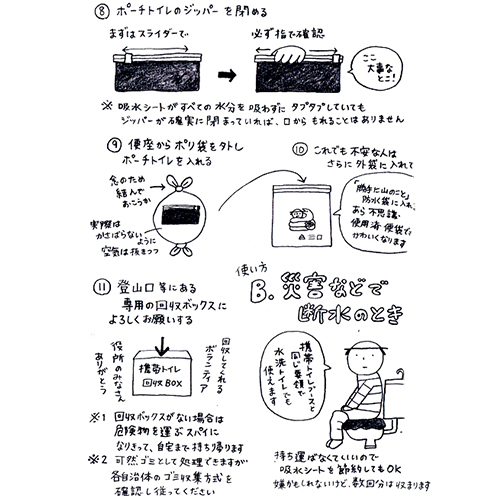 ⑧ ポーチトイレのジッパーを閉める
まずはスライダーで
必ず指で確認
ここ
大事な
とこ!
※ 吸水シートがすべての水分を吸わずにタプタプしていても
ジッパーが確実に閉まっていれば、口からもれることはありません
⑨ 便座からポリ袋を外し
ポーチトイレを入れる
念のため
結んで
おこうか
実際は
かさばらない
ように
空気は抜きつつ
⑩ これでも不安な人は
さらに外袋に入れて
「勝手に山のこと」
防水袋に入れ、
あら不思議
使用済便袋で
かわいくなります
⑪ 登山口等にある
専用の回収ボックスに
よろしくお願いする
役所のみなさん
ありがとう
携帯トイレ
回収BOX
回収してくれる
ボランティア
※1 回収ボックスがない場合は
危険物を運ぶスパイに
なりきって、自宅まで持ち帰ります
※2 可燃ゴミとして処理できますが
各自治体のゴミ収集方式を
確認し従ってください
使い方
B. 災害などで
断水のとき
携帯トイレブースと
同じ要領で
水洗トイレでも
使えます
持ち運ばなくていいので
吸水シートを節約してもOK
嫌かもしれないけど、数回分は収まります